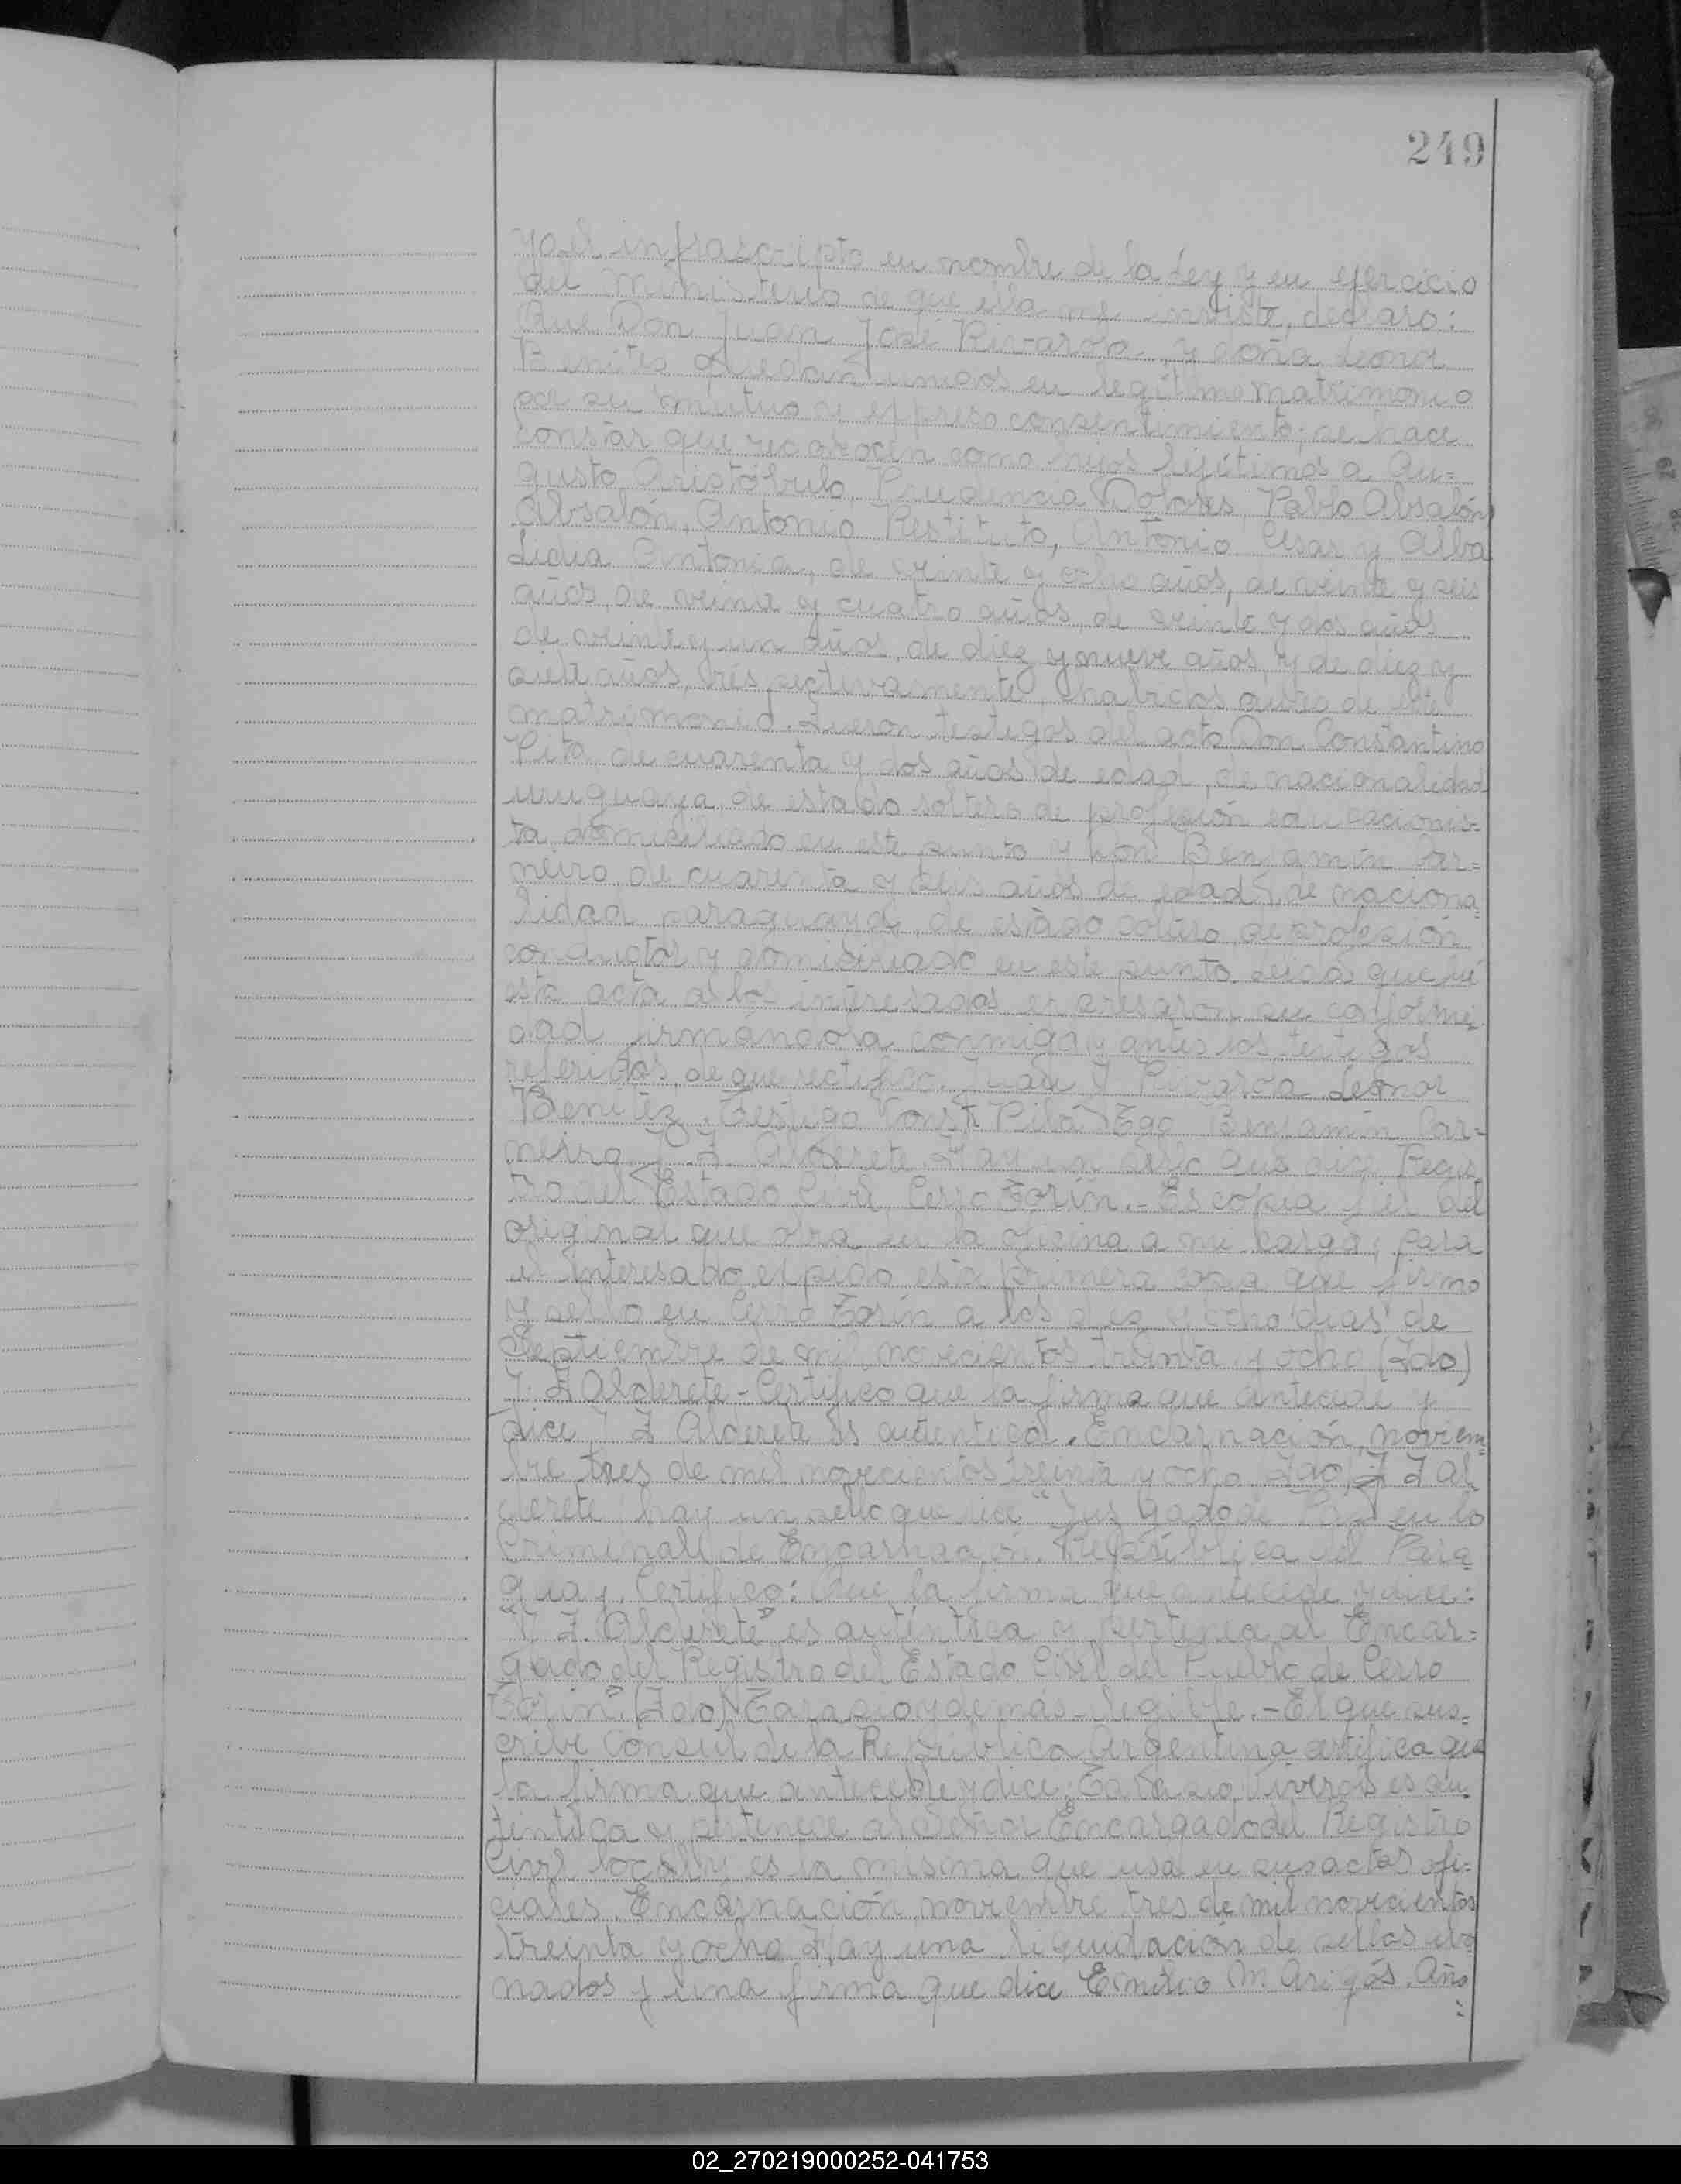 249
yo el infrascripto en nombre de la Ley y en ejercicio
del Ministerio de que ella me inviste, declaro:
Que Don Juan José Rivarola y doña Leonor
Benitez quedan unidos en legítimo matrimonio
por su mutuo y expreso consentimiento; se hace
constar que reconocen como hijos lejítimos a Au=
gusto Aristóbulo, Prudencia Dolores, Pablo Absalón
Absalón, Antonio Restituto, Antonio Cesar y Alba
Lidia Antonia, de veinte y ocho años, de veinte y seis
años, de veinte y cuatro años, de veinte y dos años
de veinte y un años, de diez y nueve años y de diez y
siete años, respectivamente, habidos antes de este
matrimonio. Fueron testigos del acto Don Constantino
de cuarenta y dos años de edad, de nacionalidad
uruguaya de estado soltero de profesión educacionis-
ta domiciliado en este punto y Don Benjamín Car=
neiro, de cuarenta y seis años de edad, de naciona=
lidad paraguaya, de estado soltero de profesión
conductor y domiciliado en este punto. Leida que fué
esta acta a los interesados expresaron su conformi
dad firmándola conmigo y antes los testigos
referidos, de que certifico. Juan J Rivarola Leonor
Benitez. Testigo Const Tgo Benjamín Car-
neiro Alderete. Hay un sello que dice Regis
tro del Estado Civil Cerro Corín.- Es copia fiel del
original que obra en la oficina a mi cargo, para
el interesado expido esta primera copia que firmo
y sello en Cerro Corín a los diez y ocho dias de
Septiembre de mil novecientos treinta y ocho (Fdo)
J. F Alderete - Certifico que la firma que antecede y
dice J F Alderete es autentica. Encarnación, noviem=
bre tres de mil novecientos treinta y ocho Fdo) J F Al
derete hay un sello que dice "Juzgado de Paz en lo
Criminal de Encarnación. República del Para
guay. Certifico: Que la firma que antecede y dice:
"J F. Alderete" es auténtica y pertenece al Encar=
gado del Registro del Estado Civil del Pueblo de Cerro
Corín" (Fdo) y demás ilegible.- El que sus=
cribe Consul de la República Argentina certifica que
la firma que antecede y dice: es au
téntica y pertenece al Señor Encargado del Registro
Civil local y es la misma que usa en sus actos ofi=
ciales. Encarnación, noviembre tres de mil novecientos
treinta y ocho Hay una liquidación de sellos abo
nados y una firma que dice Emilio M Arigós. Año
=
02_270219000252-041753